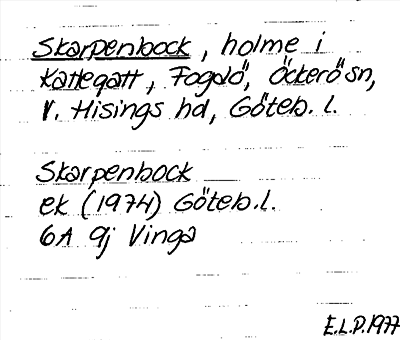 Skarpenbock, holme i
Kattegatt, Fogdö, Öckerö sn,
V. Hisings hd, Göteb. l.
Skarpenbock
ek (1974) Göteb. l.
6A 9j Vinga
E.L.P. 1977